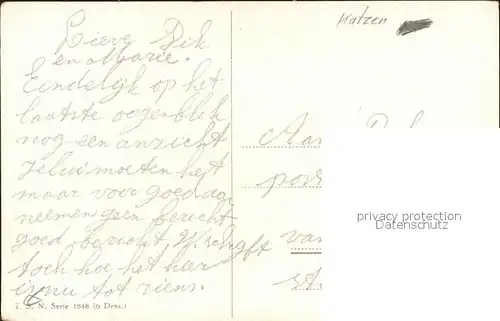 Katzen
Lieve Dik
en Marie.
Eindelijk op het
laatste oogenblik
nog een anzicht
jelui moeten het
maar voor goed aan
neemen geen bericht
goed bericht,
toch hoe het hier
is nu tot ziens.
T. S. N. Serie 1848 (6 Dess.)
Aan
privacy protection
Datenschutz